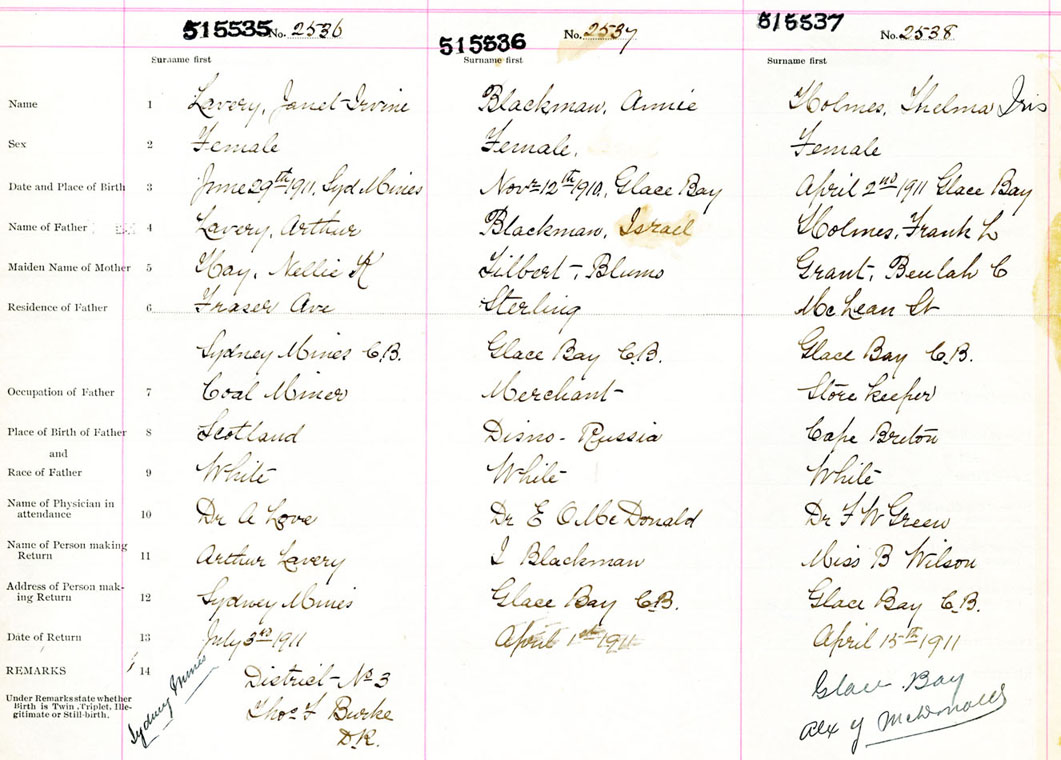 515535 No. 2536 515536 No. 2537 515537 No. 2538
Surname first Surname first Surname first
Name 1 Lavery, Janet Irvine Blackman, Annie Holmes, Thelma Iris
Sex 2 Female Female. Female
Date and Place of Birth 3 June 29th 1911, Syd Mines Novr 12th 1910, Glace Bay April 2nd 1911 Glace Bay
Name of Father 4 Lavery, Arthur Blackman, Israel Holmes, Frank L
Maiden Name of Mother 5 Hay, Nellie Gilbert, Blums Grant, Beulah C
Residence of Father 6 Fraser Ave Sterling McLean St
Sydney Mines C.B. Glace Bay C.B. Glace Bay C.B.
Occupation of Father 7 Coal Miner Merchant Store keeper
Place of Birth of Father 8 Scotland Disno - Russia Cape Breton
and
Race of Father 9 White White White
Name of Physician in
attendance 10 Dr A Love Dr E O McDonald Dr F W Green
Name of Person making
Return 11 Arthur Lavery I Blackman Miss B Wilson
Address of Person mak-
ing Return 12 Sydney Mines Glace Bay C.B. Glace Bay C.B.
Date of Return 13 July 3rd 1911 April 1st 1911 April 15th 1911
REMARKS 14 District No 3 Glace Bay
Under Remarks state whether
Birth is Twin, Triplet, Ille-
gitimate or Still-birth.
Sydney Mines
Thos F Burke Alex J McDonald
D.R.